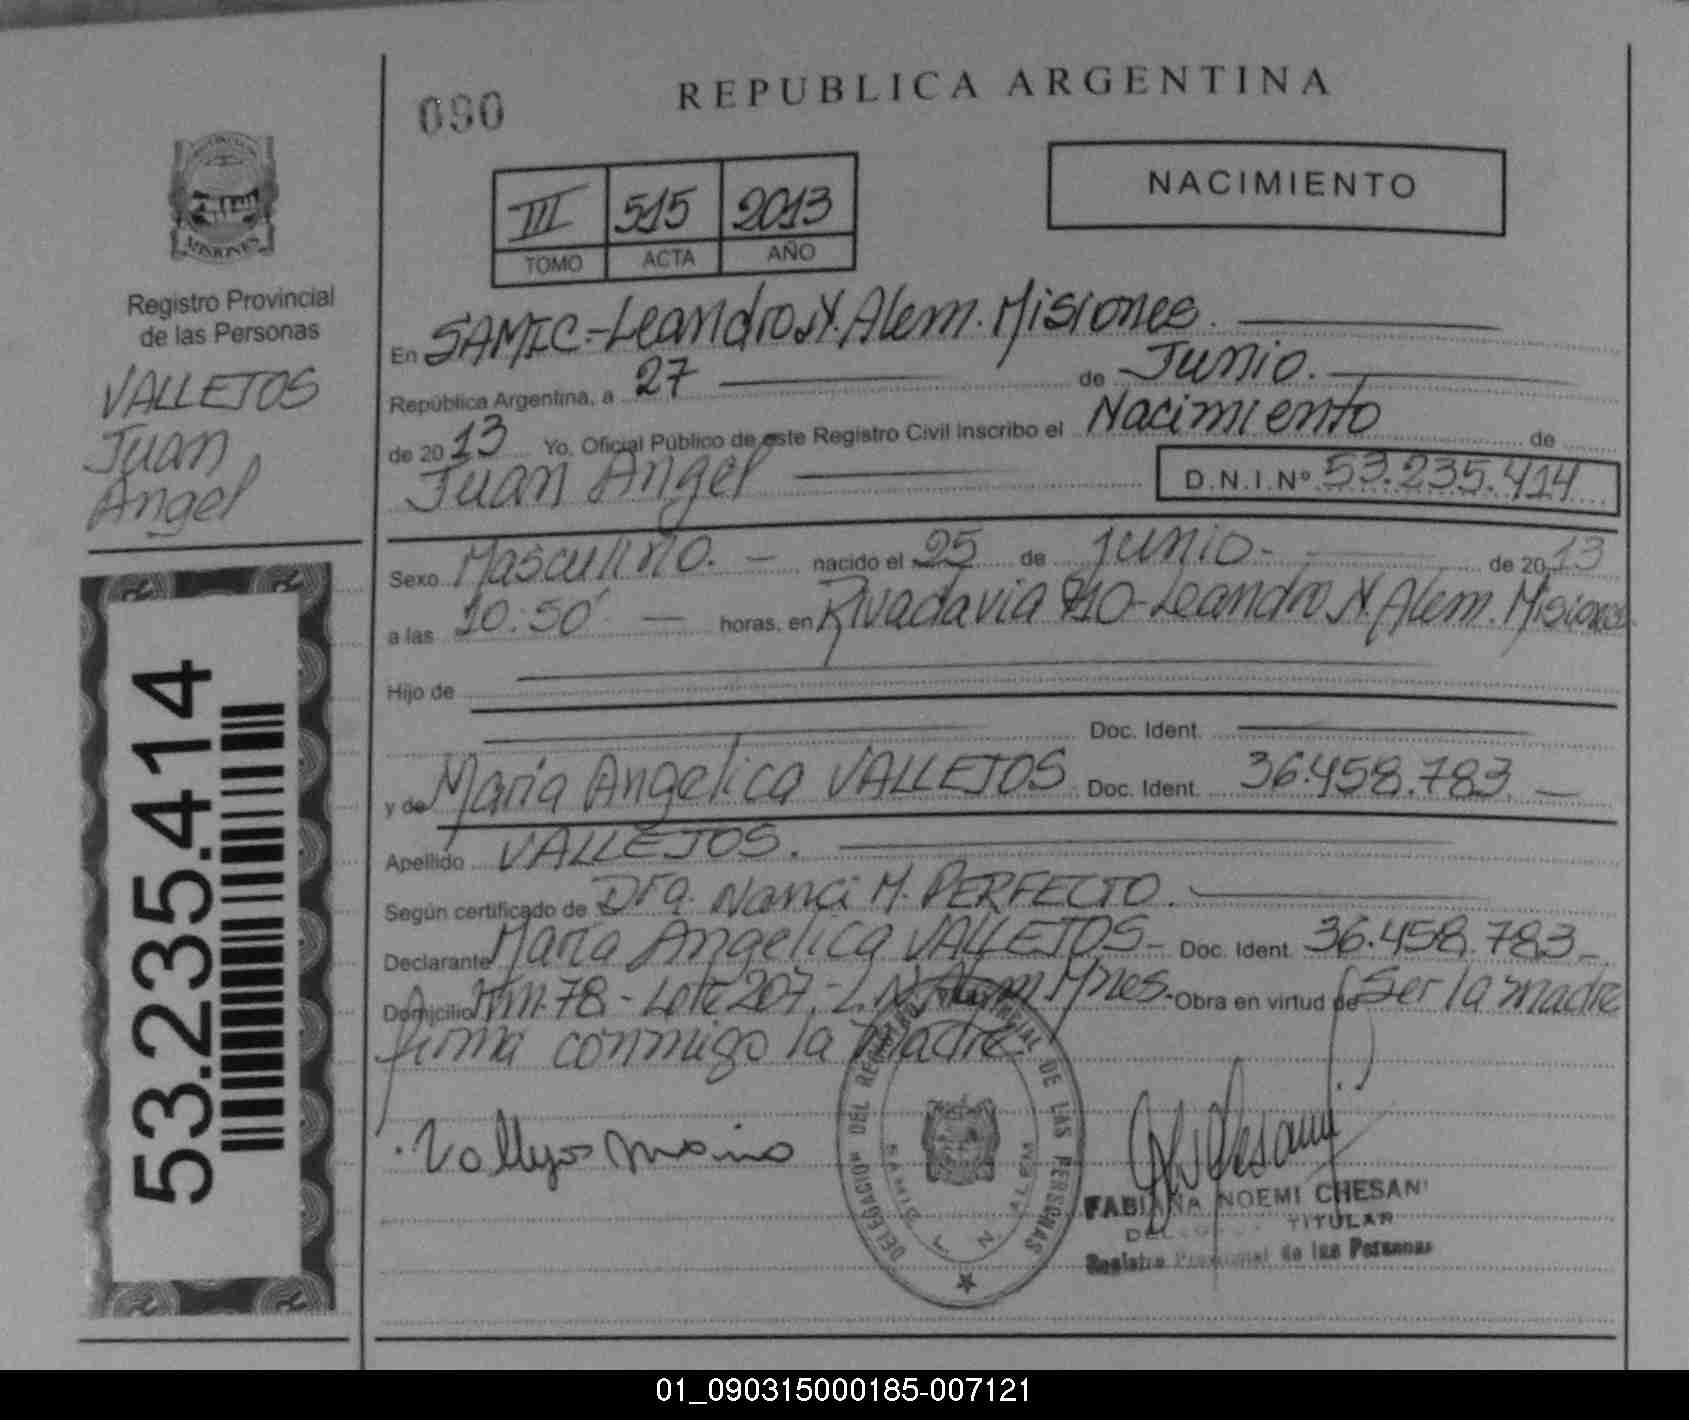 090
REPUBLICA ARGENTINA
NACIMIENTO
III 515 2013
TOMO ACTA AÑO
MISIONES
Registro Provincial
de las Personas
VALLEJOS
Juan
Angel
53.235.414
En SAMIC-Leandro N. Alem. Misiones.
República Argentina, a 27 de Junio.
de 2013 Yo, Oficial Público de este Registro Civil inscribo el Nacimiento de
Juan Angel D.N.I.Nº 53.235.414
Sexo Masculino. nacido el 25 de junio. de 2013
a las 10:50' horas, en Rivadavia 710-Leandro N. Alem. Misiones
Hijo de
Doc. Ident.
y de Maria Angelica VALLEJOS Doc. Ident. 36.458.783.
Apellido VALLEJOS.
Según certificado de Dra. Nanci M. PERFECTO.
Declarante Maria Angelica VALLEJOS- Doc. Ident. 36.458.783-
Domicilio 78-Lote 207.-L.N. Alem Mnes. Obra en virtud de Ser la madre
firma conmigo la madre.
Vallejos Maria
DELEGACION DEL REGISTRO PROVINCIAL DE LAS PERSONAS
SAMIC L. N. ALEM
FABIANA NOEMI CHESANI
TITULAR
Registro Provincial de las Personas
01_090315000185-007121